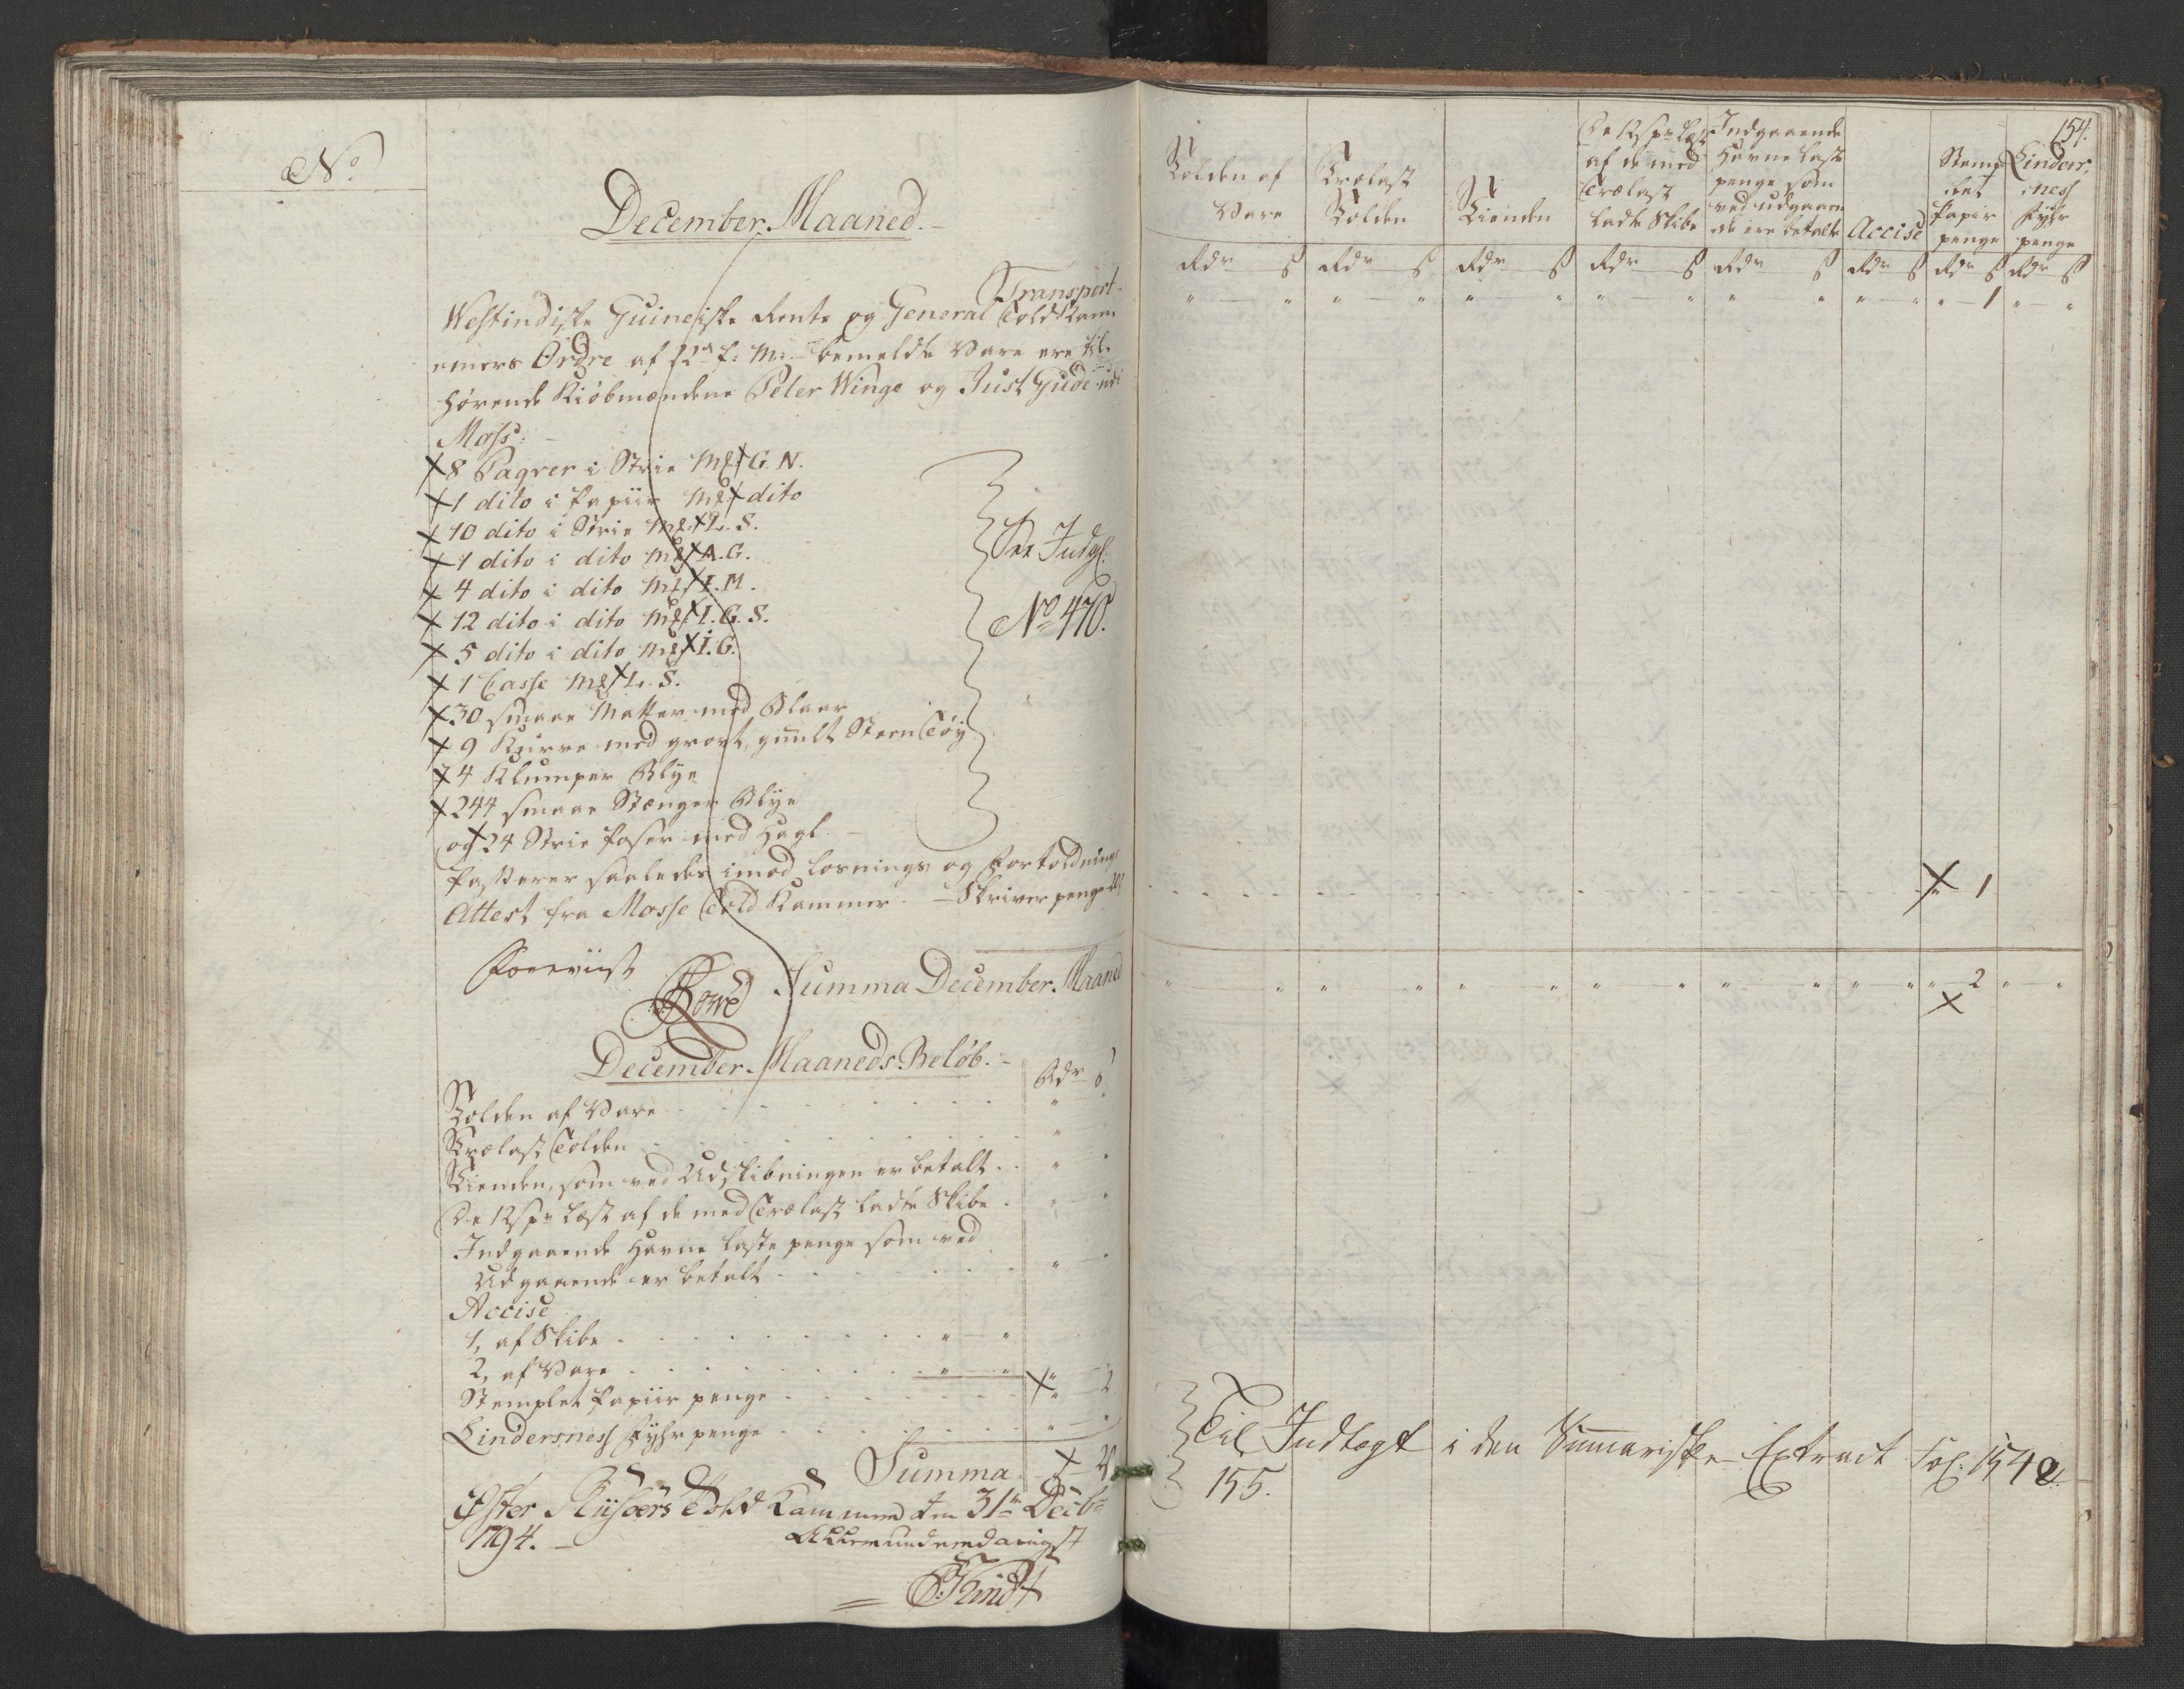 No
December Maaned.
Transport
Westindiske Guineiske Rente og General Told Kam¬
mers Ordre af 12te f: M: bemeldte Vare ere til¬
hørende Kiøbmændene Peter Winge og Just Gude udi
Moss:
8 Pagver i Strie Mk G. N.
1 dito i Papiir Mk dito
10 dito i Strie Mk L. S.
1 dito i dito Mk A. G.
4 dito i dito Mk I. M.
12 dito i dito Mk I. G. S.
5 dito i dito Mk I. G.
1 Casse Mk L. S.
30 smaae Matter med Blaar
9 Kurve med grovt, guult Steen Tøy
4 Klumper Blye
244 smaae Stænger Blye
og 24 Strie Poser med Hagl.
See Indg:
No 470.
Passerer saaledes imod Losnings og Fortoldnings
Attest fra Mosse Told Kammer. Skriver penge
Foreviist
Summa December Maaned
December Maaneds Beløb.
Rdr s
Tolden af Vare
Trælast Tolden
Tienden, som ved Udskibningen er betalt
De 12 s pr Læst af de med Trælast ladte Skibe
Indgaaende Havne laste penge som ved
Udgaaende er betalt
Accise
1, af Skibe
2, af Vare
Stemplet Papiir penge 2
Lindersness Fyhr penge
Summa 2
Øster Riisøers Told Kammer den 31te Decbr
1794.
Allerunderdanigst
154.
Tolden af Vare
Trælast Tolden
Tienden
De 12 s pr Læst af de med Trælast ladte Skibe
Indgaaende Havne laste penge som ved udgaaende ere betalte
Accise
Stemplet Papir penge
Linders¬ness Fyhr penge
Rdr s Rdr s Rdr s Rdr s Rdr s Rdr s Rdr s Rdr s
" " " " " " " " " " " " " 1 " "
" 1
" " " " " " " " " " " " " 2 " "
Til Indtægt i den Summariske Extract Fol: 154 &
155.